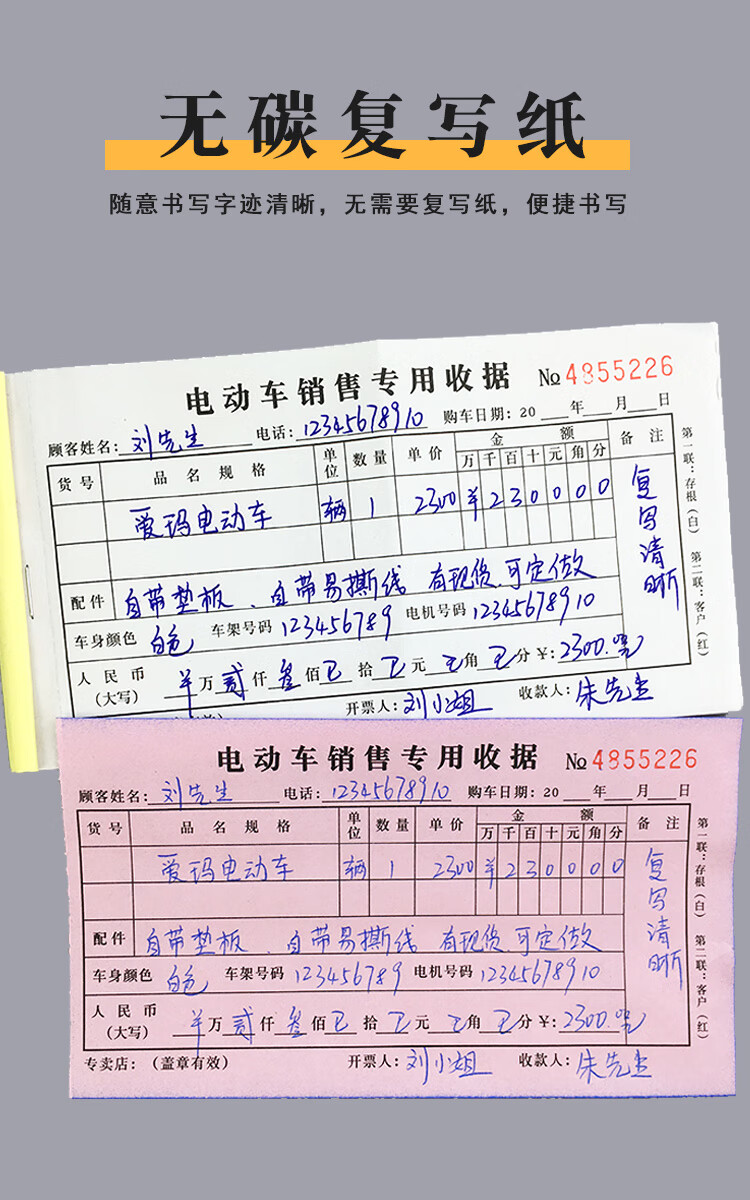 无碳复写纸
随意书写字迹清晰，无需要复写纸，便捷书写
电动车销售专用收据 No 4855226
顾客姓名：刘先生 电话：12345678910 购车日期：20 年 月 日
货号 品名规格 单位 数量 单价 金额 备注
万 千 百 十 元 角 分
爱玛电动车 辆 1 2300 ¥ 2 3 0 0 0 0
复写清晰
配件 自带垫板、自带易撕线 有现货、可定做
车身颜色 白色 车架号码 123456789 电机号码 12345678910
人民币（大写） 万 贰 仟 叁 佰 拾 元 角 分 ¥：2300.00
开票人：刘小姐 收款人：朱先生
第一联：存根（白） 第二联：客户（红）
电动车销售专用收据 No 4855226
顾客姓名：刘先生 电话：12345678910 购车日期：20 年 月 日
货号 品名规格 单位 数量 单价 金额 备注
万 千 百 十 元 角 分
爱玛电动车 辆 1 2300 ¥ 2 3 0 0 0 0
复写清晰
配件 自带垫板、自带易撕线 有现货、可定做
车身颜色 白色 车架号码 123456789 电机号码 12345678910
人民币（大写） 万 贰 仟 叁 佰 拾 元 角 分 ¥：2300.00
专卖店：（盖章有效） 开票人：刘小姐 收款人：朱先生
第一联：存根（白） 第二联：客户（红）